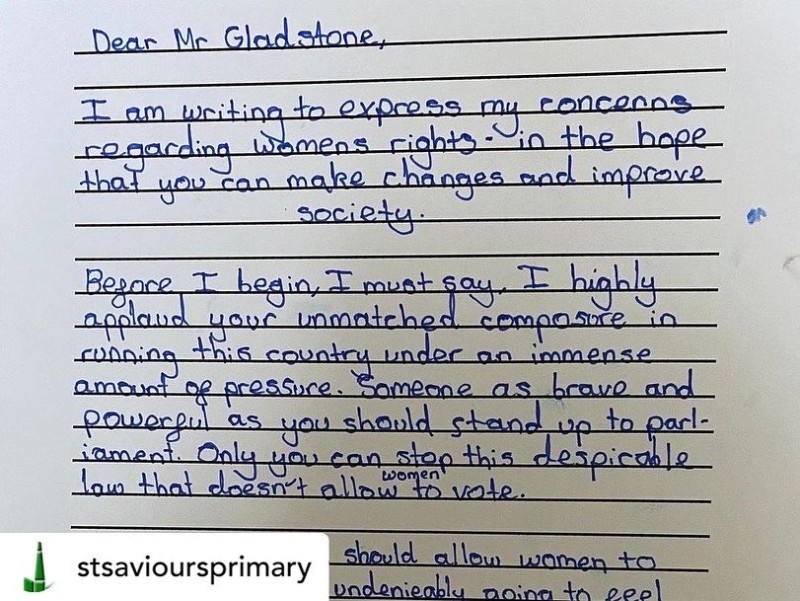 Dear Mr Gladstone,
I am writing to express my concerns
regarding womens rights - in the hope
that you can make changes and improve
society.
Before I begin, I must say, I highly
applaud your unmatched composure in
running this country under an immense
amount of pressure. Someone as brave and
powerful as you should stand up to parl-
iament. Only you can stop this despicable
women
law that doesn't allow to vote.
should allow women to
undenieably going to feel
stsavioursprimary